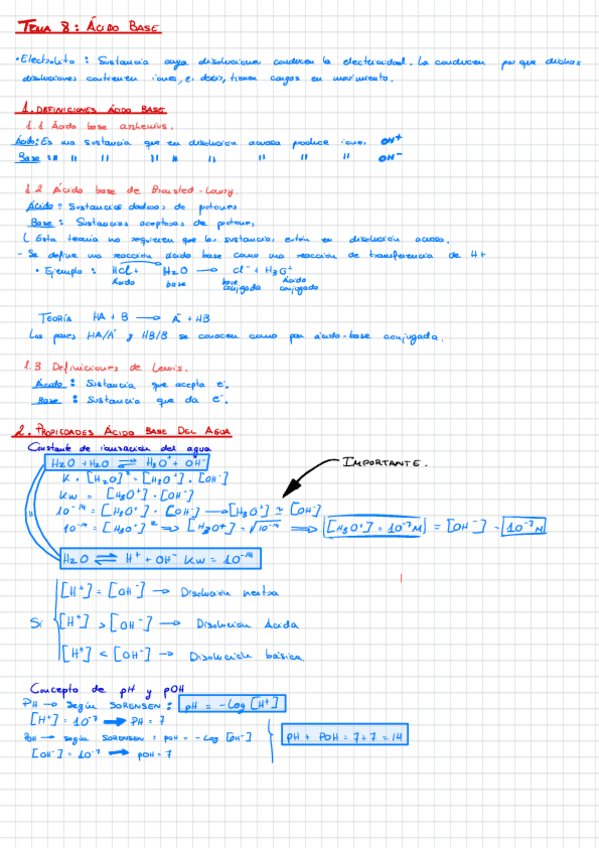 TEMA 8: ÁCIDO BASE
• Electrolito: Sustancia cuya disoluciones conducen la electricidad. La conducen porque dichas
disoluciones contienen iones, es decir, tienen cargas en movimiento.
1. DEFINICIONES ÁCIDO BASE
1.1 Ácido base arrhenius.
Ácido: Es una sustancia que en disolución acuosa produce iones OH+
Base: " " " " " " " " " OH-
1.2 Ácido base de Bronsted-Lowry.
Ácido: Sustancias dadoras de protones
Base: Sustancias aceptoras de protones
( Esta teoria no requieren que las sustancias estén en disolución acuosa.
- Se define una reacción ácido base como una reacción de transferencia de H+
• Ejemplo: HCl + H2O → Cl- + H3O+
Ácido base base conjugada Ácido conjugado
TEORÍA HA + B → A- + HB
Los pares HA/A- y HB/B se conocen como par ácido-base conjugada.
1.3 Definiciones de Lewis.
Ácido: Sustancia que acepta e-.
Base: Sustancia que da e-.
2. PROPIEDADES ÁCIDO BASE DEL AGUA
Constante de ionización del agua
H2O + H2O ⇌ H3O+ + OH-
IMPORTANTE.
K · [H2O]² = [H3O+] · [OH-]
Kw = [H3O+] · [OH-]
10-14 = [H3O+] · [OH-] → [H3O+] ≃ [OH-]
10-14 = [H3O+]² ⇒ [H3O+] = √10-14 ⇒ [H3O+] = 10-7 M = [OH-] = 10-7 M
H2O ⇌ H+ + OH- Kw = 10-14
[H+] = [OH-] → Disolución neutra
Si [H+] > [OH-] → Disolución Ácida
[H+] < [OH-] → Disolución básica
Concepto de pH y pOH
PH → Según SORENSEN: pH = -Log [H+]
[H+] = 10-7 → PH = 7
POH → Según SORENSEN: pOH = -Log [OH-]
pH + POH = 7+7 = 14
[OH-] = 10-7 → pOH = 7